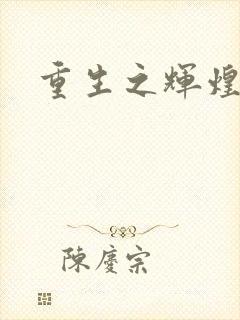 重生之輝煌
陳慶宗